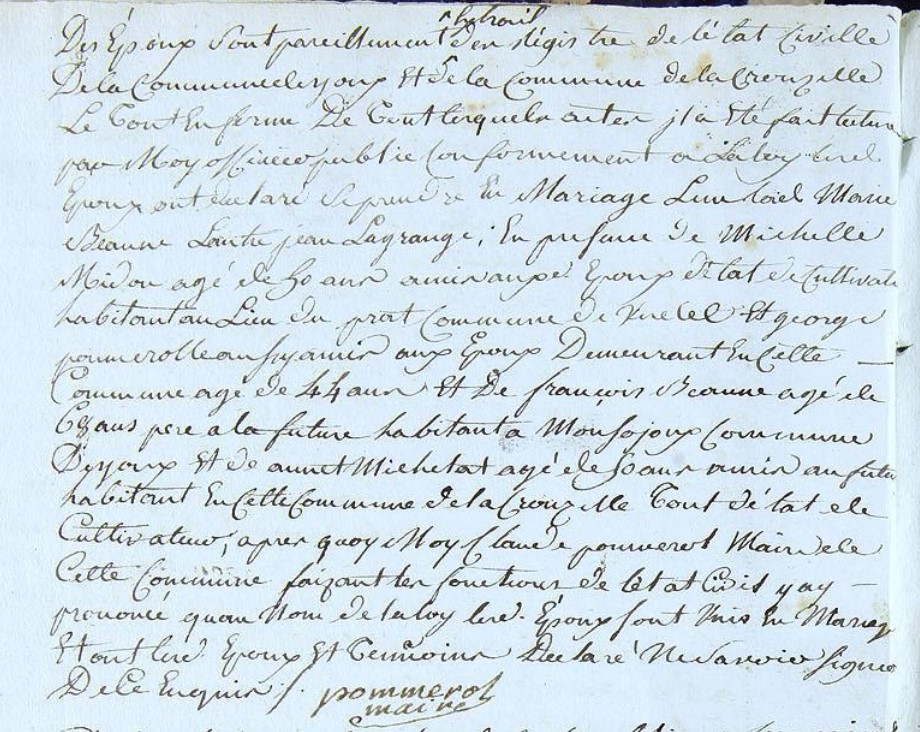 lextrait
Des Époux Sont pareillement des Régistre de létat Civille
De la Commune de youx Et de la Commune de la Crouzille
Le Tout En forme De Tout lesquels actes jl a Eté fait lecture
par Moy officier public Conformement a La loy Lesd.
Epoux ont declaré Se prendre En Mariage Lun loiel Marie
Beaune Lautre jean Lagrange; En presance de Michelle
Midon agé de 50 ans amis auxd. Epoux détat de Cultivate
habitant au Lieu du prat Commune de Et george
pommerolle aussy amis aux Epoux Demeurant En Cette
Commune agé de 44 ans Et De françois Beaune agé de
68 ans pere a la future habitant a Monsojoux Commune
Deyoux Et de annet Michelat agé de 50 ans amis au futu
habitant En Cette Commune de la Crouzille Tout détat de
Cultivateur, apres quoy Moy Claude pommerol Maire de
Cette Commune faizant les fonctions de létat Civil y ay
prononcé quau Nom de la loy lesd. Époux sont Unis En Mariag
Et ont lesd. Epoux Et Temoins Declaré Ne Savoir signer
De Ce Enquis /.
pommerol
maire